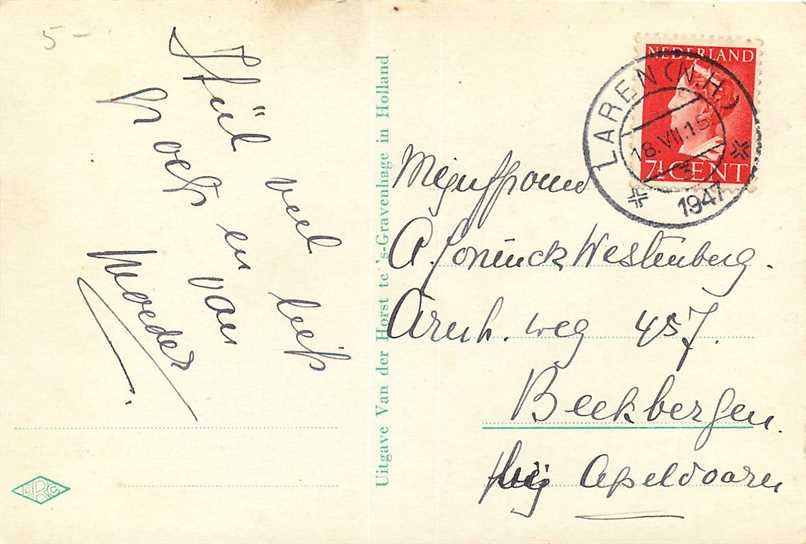 5-
veel
en
van
Moeder
Uitgave Van der Horst te 's-Gravenhage in Holland
NEDERLAND
7½ CENT
LAREN (N.H.)
18.VII.15
1947
A. Westenberg.
Arnh. weg 457.
Beekbergen.
bij Apeldoorn